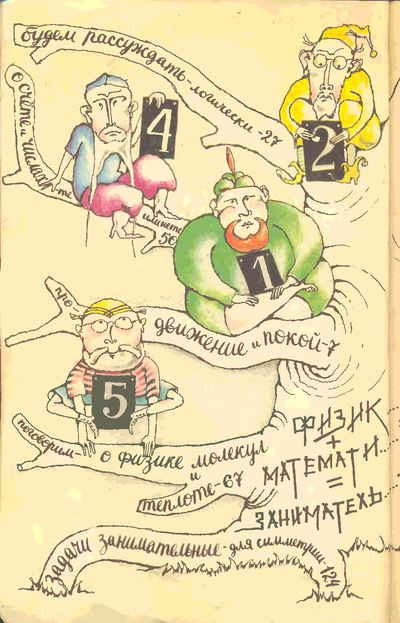 будем рассуждать - логически - 27
о счёте и числах
4
2
1
про
движение и покой - 7
5
поговорим - о физике молекул
и
теплоте - 67
ФИЗИК
+
МАТЕМАТИ
=
ЗАНИМАТЕЛЬ
задачи занимательные - для симметрии - 124